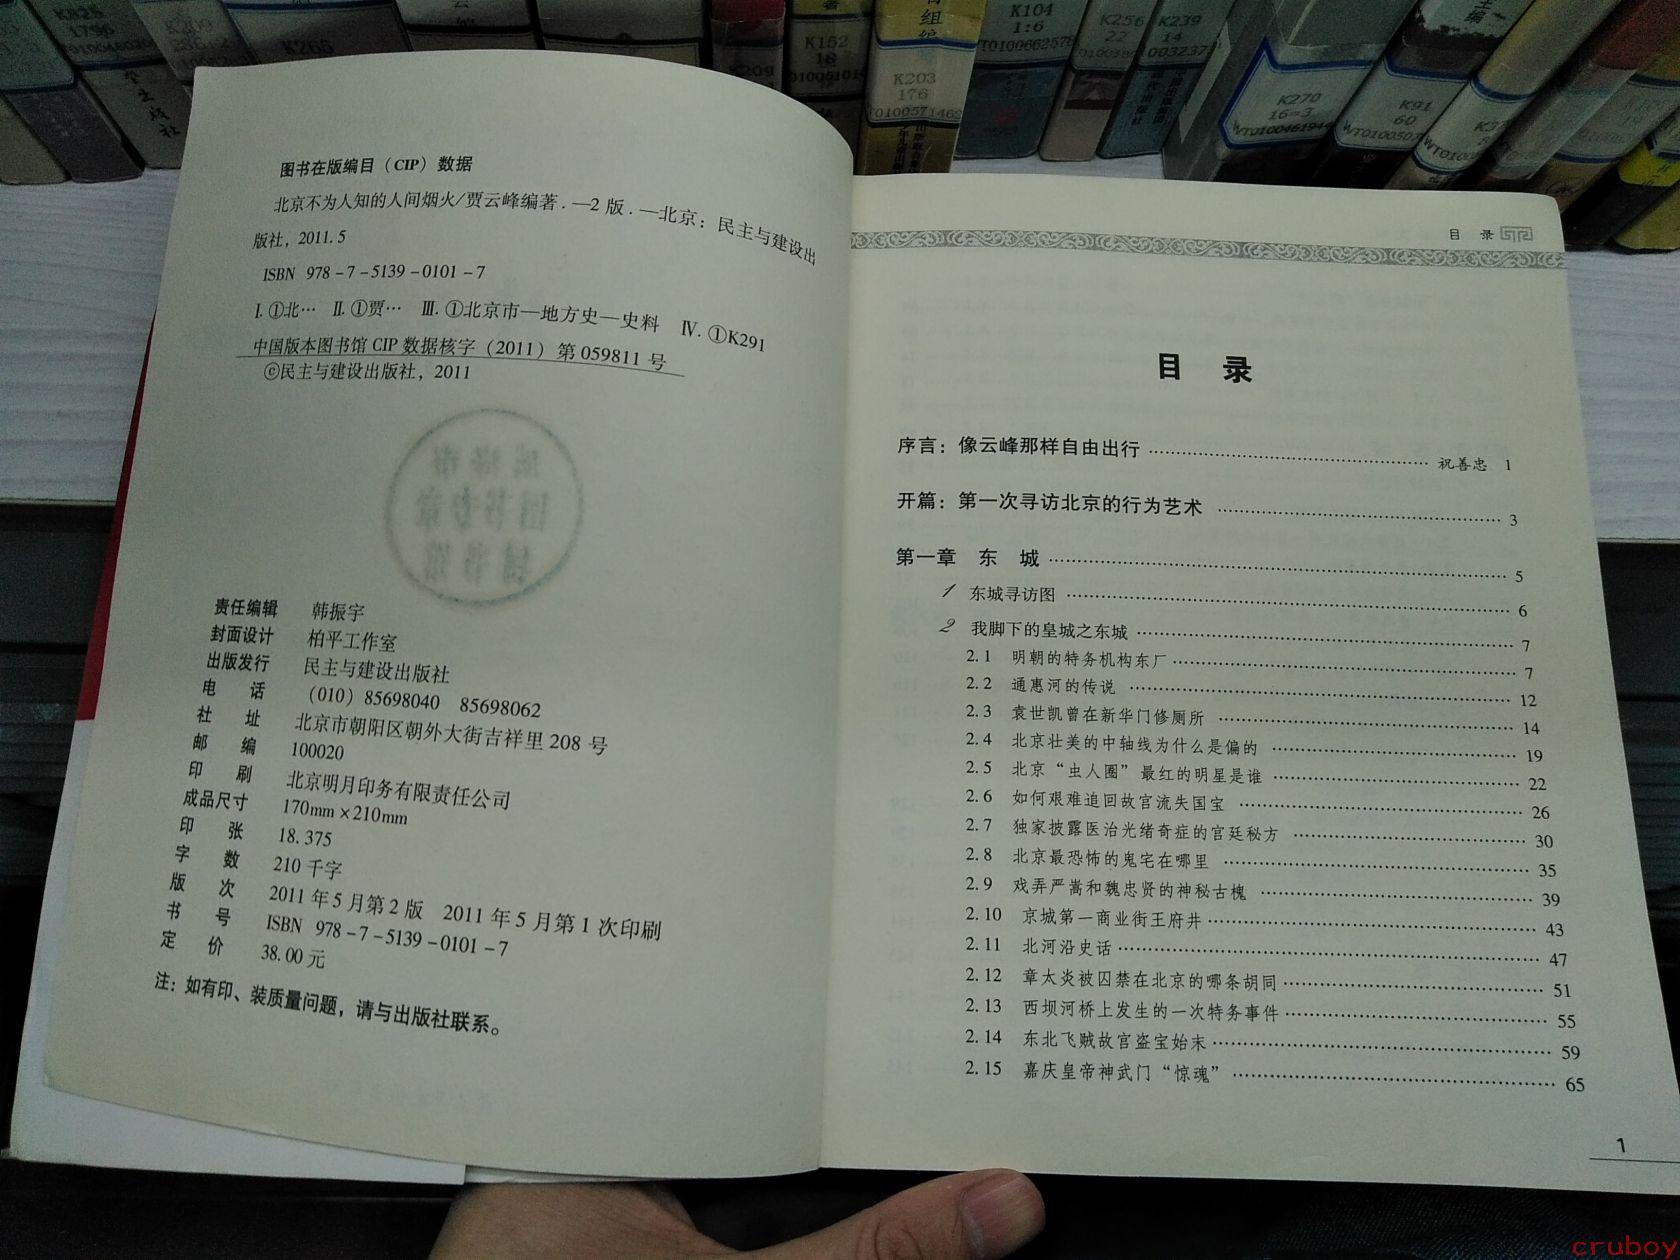 K825
1796
K209
K265
K152
18
K203
176
T0100571462
K104
1:6
T0100662578
K256
22
K239
14
K270
16=3
WT0100461944
K91
60
WT0100507
图书在版编目(CIP)数据
北京不为人知的人间烟火/贾云峰编著.—2版.—北京:民主与建设出
版社,2011.5
ISBN 978-7-5139-0101-7
Ⅰ.①北… Ⅱ.①贾… Ⅲ.①北京市—地方史—史料 Ⅳ.①K291
中国版本图书馆CIP数据核字(2011)第059811号
©民主与建设出版社,2011
责任编辑 韩振宇
封面设计 柏平工作室
出版发行 民主与建设出版社
电 话 (010)85698040 85698062
社 址 北京市朝阳区朝外大街吉祥里208号
邮 编 100020
印 刷 北京明月印务有限责任公司
成品尺寸 170mm×210mm
印 张 18.375
字 数 210千字
版 次 2011年5月第2版 2011年5月第1次印刷
书 号 ISBN 978-7-5139-0101-7
定 价 38.00元
注:如有印、装质量问题,请与出版社联系。
目 录
目 录
序言:像云峰那样自由出行 …… 祝善忠 1
开篇:第一次寻访北京的行为艺术 …… 3
第一章 东 城 …… 5
1 东城寻访图 …… 6
2 我脚下的皇城之东城 …… 7
2.1 明朝的特务机构东厂 …… 7
2.2 通惠河的传说 …… 12
2.3 袁世凯曾在新华门修厕所 …… 14
2.4 北京壮美的中轴线为什么是偏的 …… 19
2.5 北京“虫人圈”最红的明星是谁 …… 22
2.6 如何艰难追回故宫流失国宝 …… 26
2.7 独家披露医治光绪奇症的宫廷秘方 …… 30
2.8 北京最恐怖的鬼宅在哪里 …… 35
2.9 戏弄严嵩和魏忠贤的神秘古槐 …… 39
2.10 京城第一商业街王府井 …… 43
2.11 北河沿史话 …… 47
2.12 章太炎被囚禁在北京的哪条胡同 …… 51
2.13 西坝河桥上发生的一次特务事件 …… 55
2.14 东北飞贼故宫盗宝始末 …… 59
2.15 嘉庆皇帝神武门“惊魂” …… 65
1
cruboy